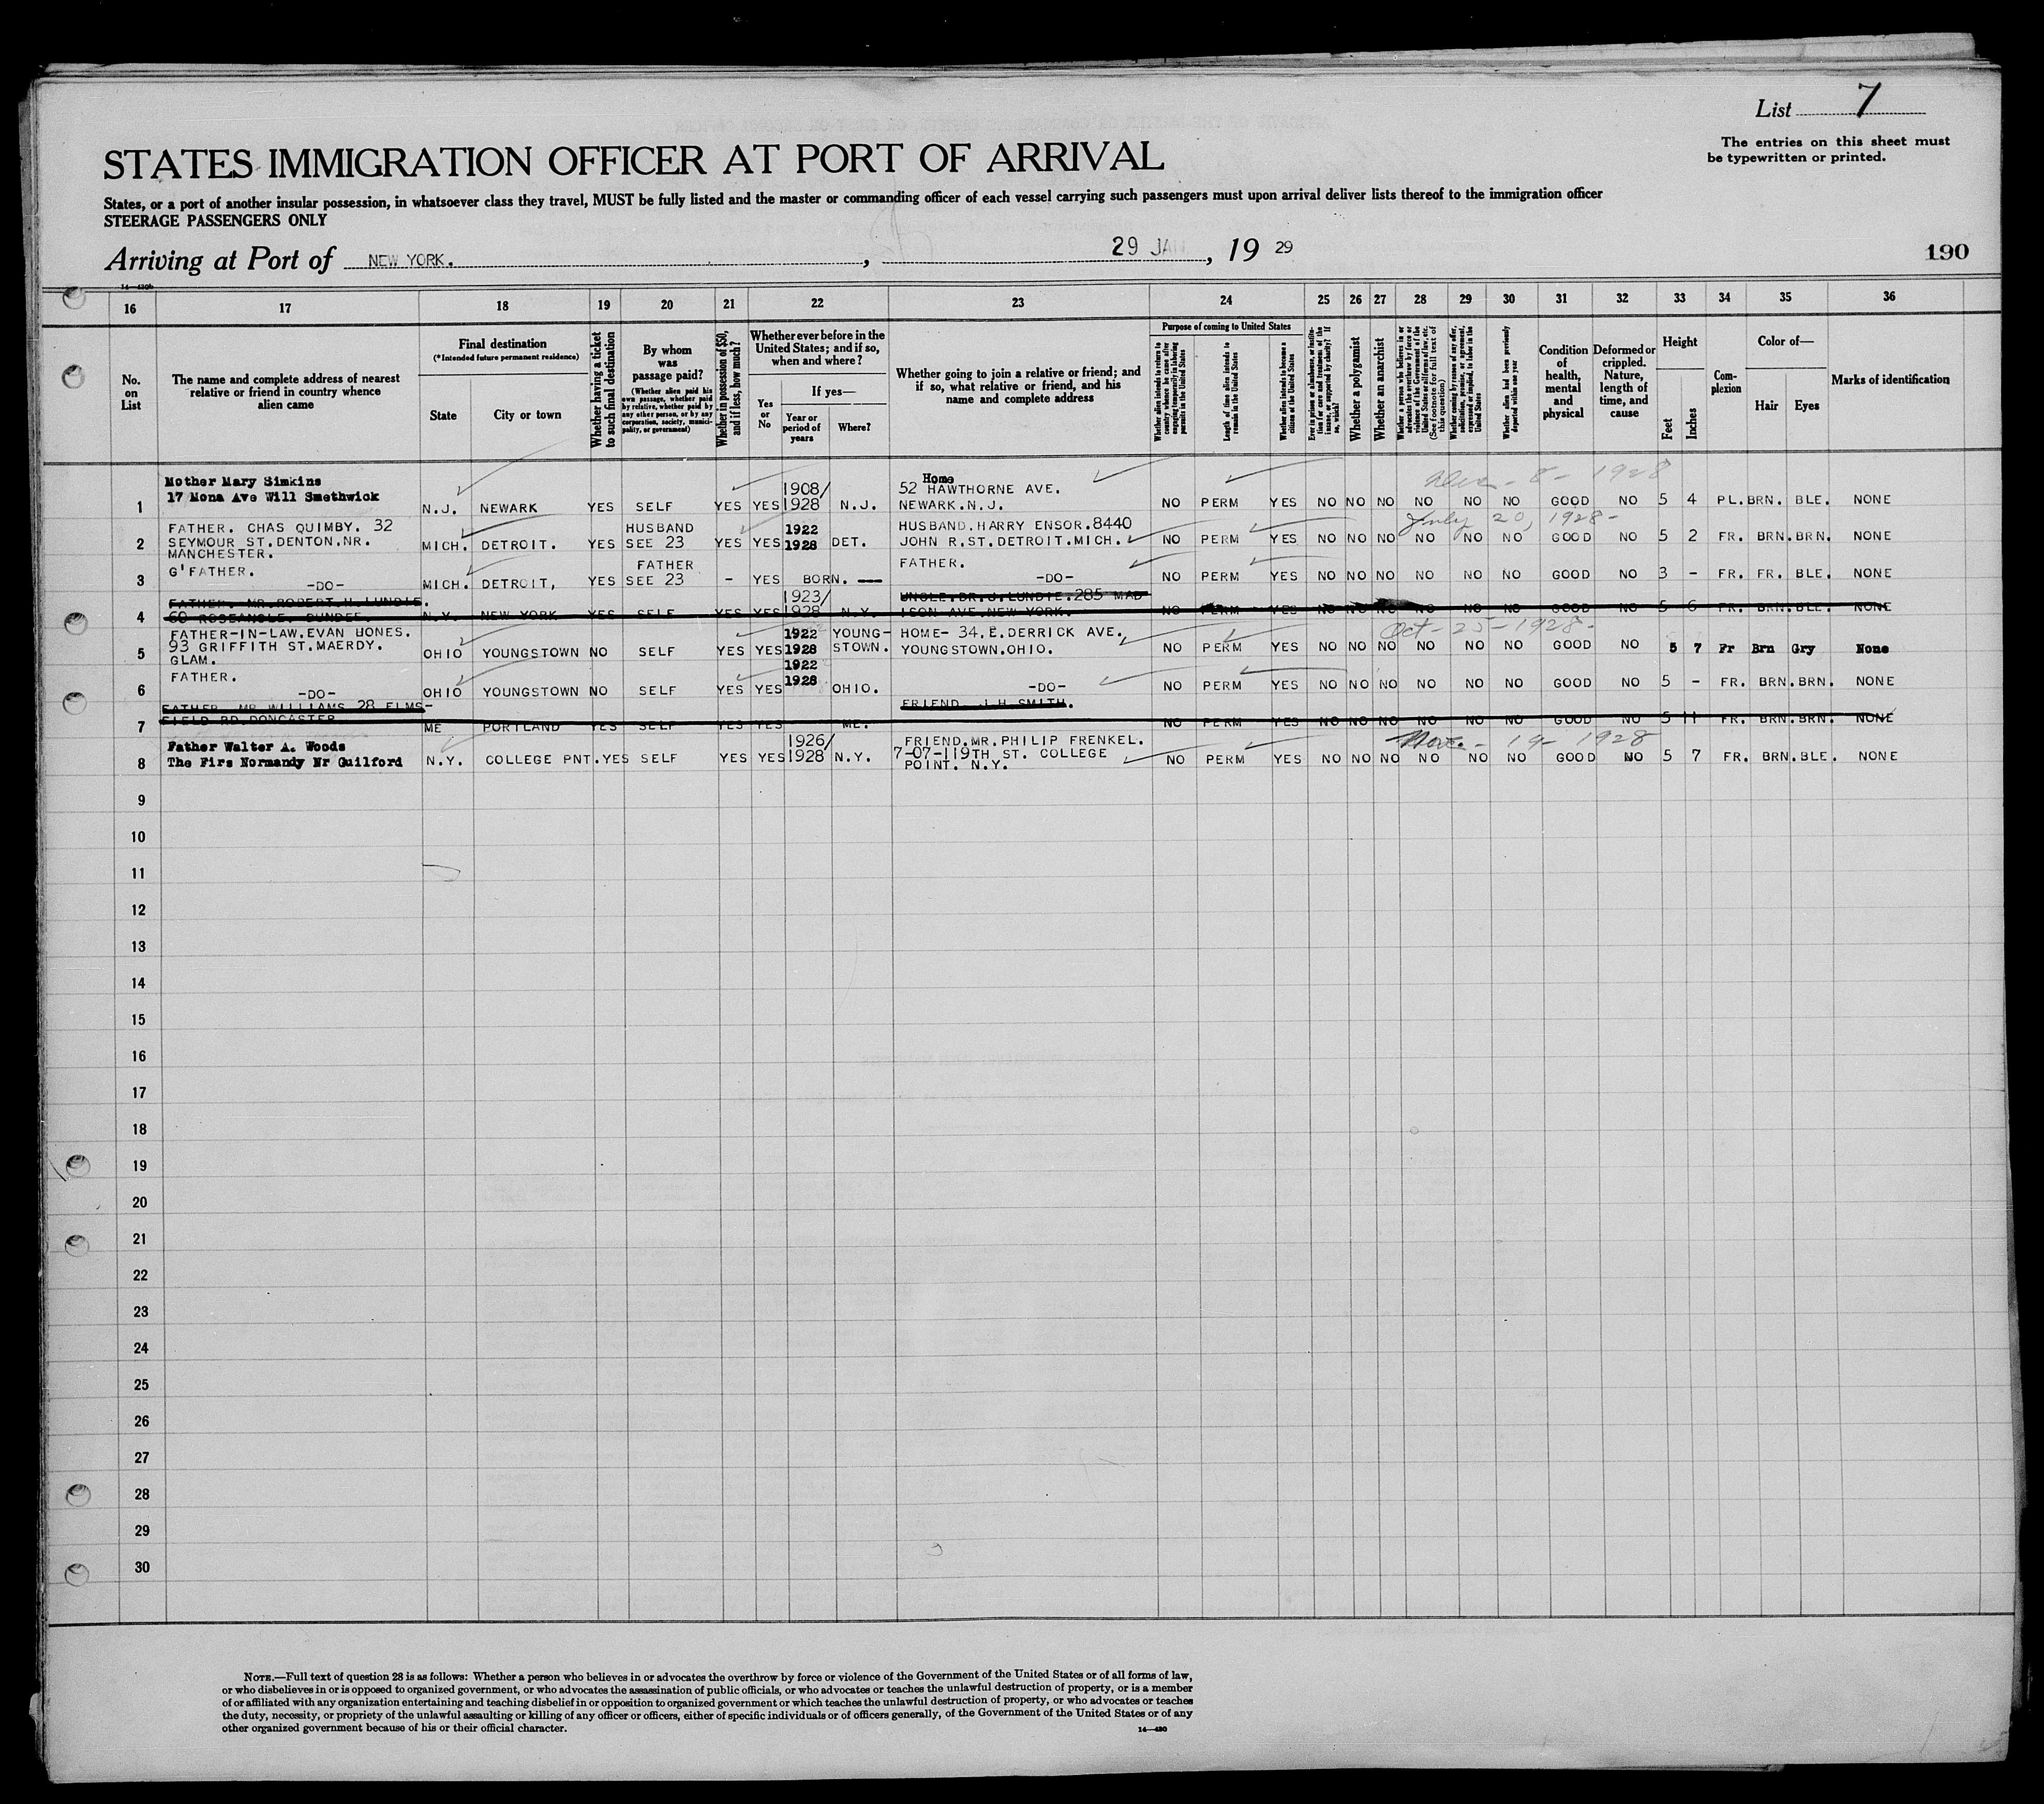 List 7
The entries on this sheet must
be typewritten or printed.
STATES IMMIGRATION OFFICER AT PORT OF ARRIVAL
States, or a port of another insular possession, in whatsoever class they travel, MUST be fully listed and the master or commanding officer of each vessel carrying such passengers must upon arrival deliver lists thereof to the immigration officer
STEERAGE PASSENGERS ONLY
Arriving at Port of NEW YORK. , 29 JAN , 19 29
190
16 17 18 19 20 21 22 23 24 25 26 27 28 29 30 31 32 33 34 35 36
No.
on
List
The name and complete address of nearest
relative or friend in country whence
alien came
Final destination
(*Intended future permanent residence)
State
City or town
Whether having a ticket
to such final destination
By whom
was
passage paid?
(Whether alien paid his
own passage, whether paid
by relative, whether paid by
any other person, or by any
corporation, society, munici-
pality, or government)
Whether in possession of $50,
and if less, how much?
Whether ever before in the
United States; and if so,
when and where?
Yes
or
No
If yes—
Year or
period of
years
Where?
Whether going to join a relative or friend; and
if so, what relative or friend, and his
name and complete address
Purpose of coming to United States
Whether alien intends to return to
country whence he came after
engaging temporarily in laboring
pursuits in the United States
Length of time alien intends to
remain in the United States
Whether alien intends to become a
citizen of the United States
Ever in prison or almshouse, or institu-
tion for care and treatment of the
insane, or supported by charity? If
so, which?
Whether a polygamist
Whether an anarchist
Whether a person who believes in or
advocates the overthrow by force or
violence of the Government of the
United States or all forms of law, etc.
(See footnote for full text of
this question)
Whether coming by reason of any offer,
solicitation, promise, or agreement,
expressed or implied, to labor in the
United States
Whether alien had been previously
deported within one year
Condition
of
health,
mental
and
physical
Deformed or
crippled.
Nature,
length of
time, and
cause
Height
Feet
Inches
Com-
plexion
Color of—
Hair
Eyes
Marks of identification
Mother Mary Simkins Home Dec - 8 - 1928
17 Mona Ave Will Smethwick 1908/ 52 HAWTHORNE AVE.
1 N.J. NEWARK YES SELF YES YES 1928 N.J. NEWARK.N.J. NO PERM YES NO NO NO NO NO NO GOOD NO 5 4 PL. BRN. BLE. NONE
FATHER. CHAS QUIMBY. 32 HUSBAND 1922 HUSBAND.HARRY ENSOR.8440 July 20, 1928-
2 SEYMOUR ST.DENTON.NR. MICH. DETROIT. YES SEE 23 YES YES 1928 DET. JOHN R.ST.DETROIT.MICH. NO PERM YES NO NO NO NO NO NO GOOD NO 5 2 FR. BRN. BRN. NONE
MANCHESTER.
G'FATHER. FATHER FATHER.
3 -DO- MICH. DETROIT, YES SEE 23 - YES BORN. -DO- NO PERM YES NO NO NO NO NO NO GOOD NO 3 - FR. FR. BLE. NONE
FATHER. MR.ROBERT.H.LUNDIE. 1923/ UNCLE.DR.J.LUNDIE.285 MAD
4 60 ROSEANGLE. DUNDEE. N.Y. NEW YORK YES SELF YES YES 1928 N.Y. ISON AVE.NEW YORK. NO PERM YES NO NO NO NO NO NO GOOD NO 5 6 FR. BRN. BLE. NONE
FATHER-IN-LAW.EVAN BONES. 1922 YOUNG- HOME- 34.E.DERRICK AVE. Oct - 25 - 1928-
5 93 GRIFFITH ST.MAERDY. OHIO YOUNGSTOWN NO SELF YES YES 1928 STOWN. YOUNGSTOWN.OHIO. NO PERM YES NO NO NO NO NO NO GOOD NO 5 7 Fr Brn Gry None
GLAM.
FATHER. 1922
6 -DO- OHIO YOUNGSTOWN NO SELF YES YES 1928 OHIO. -DO- NO PERM YES NO NO NO NO NO NO GOOD NO 5 - FR. BRN. BRN. NONE
FATHER. MR WILLIAMS 28 ELMS- FRIEND. J.H.SMITH.
7 FIELD RD DONCASTER ME PORTLAND YES SELF YES YES ME. NO PERM YES NO NO NO NO NO NO GOOD NO 5 11 FR. BRN. BRN. NONE
Father Walter A. Woods 1926/ FRIEND.MR.PHILIP FRENKEL. Nov. - 19 - 1928
8 The Firs Normandy Nr Guilford N.Y. COLLEGE PNT. YES SELF YES YES 1928 N.Y. 7-07-119TH ST. COLLEGE NO PERM YES NO NO NO NO NO NO GOOD NO 5 7 FR. BRN. BLE. NONE
POINT. N.Y.
9
10
11
12
13
14
15
16
17
18
19
20
21
22
23
24
25
26
27
28
29
30
NOTE.—Full text of question 28 is as follows: Whether a person who believes in or advocates the overthrow by force or violence of the Government of the United States or of all forms of law,
or who disbelieves in or is opposed to organized government, or who advocates the assassination of public officials, or who advocates or teaches the unlawful destruction of property, or is a member
of or affiliated with any organization entertaining and teaching disbelief in or opposition to organized government or which teaches the unlawful destruction of property, or who advocates or teaches
the duty, necessity, or propriety of the unlawful assaulting or killing of any officer or officers, either of specific individuals or of officers generally, of the Government of the United States or of any
other organized government because of his or their official character.
14—430